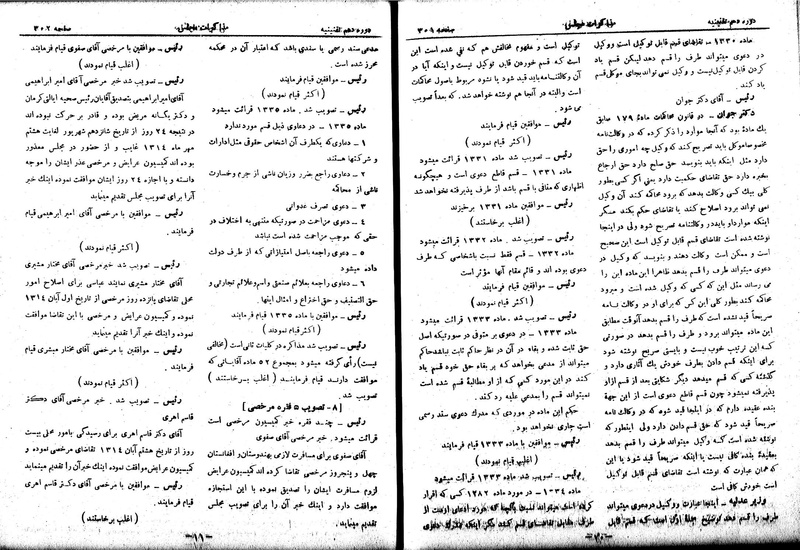 دوره دهم تقنینیه
مذاکرات مجلس
صفحه ۳۰۱
ماده ۱۳۳۰ ـ تقاضای قسم قابل توکیل است و وکیل
در دعوی میتواند طرف را قسم دهد لیکن قسم یاد
کردن قابل توکیل نیست و وکیل نمی تواند بجای موکل قسم
یاد کند.
رئیس ـ آقای دکتر جوان
دکتر جوان ـ در قانون محاکمات مادهٔ ۱۷۹ سابق
یك مادهٔ بود که آنجا موارد را ذکر کرده که در وکالتنامه
دارد مثل اینکه باید بنویسد حق صلح دارد حق ارجاع
بحکم دارد حق تقاضای حکمیت دارد یعنی اگر کسی بطور
کلی بیك کسی وکالت بدهد که برود محاکمه کند آن وکیل
نمی تواند برود اصلاح کند یا تقاضای حکم بکند مگر
نوشته شده است تقاضای قسم قابل توکیل است این صحیح
است و ممکن است وکالت دهند و بنویسد که وکیل در
دعوی میتواند طرف را قسم بدهد ظاهراً این ماده این را
می رساند مثل این که کسی که وکیل شده است و میرود
محاکمه کند بطور کلی این کس که برای او در وکالت نامه
صریحاً قید نشده است که طرف را قسم بدهد آنوقت مطابق
این ماده میتواند برود و طرف را قسم بدهد در صورتی
که این ترتیب خوب نیست و بایستی صریح نوشته شود
برای اینکه قسم دادن بطرف خودش یك آثاری دارد و
گذشته کسی که قسم میدهد دیگر شکایتی بعد از قسم از او
پذیرفته نمیشود چون قسم قاطع دعوی است از این جهة
بنده عقیده دارم که در اینجا قید شود که در وکالت نامه
صریحاً قید شود که حق قسم دادن دارد ولی اینطور که
نوشته شده است که وکیل میتواند طرف را قسم بدهد
بعقیدهٔ بنده کافی نیست یا اینکه صریحاً قید شود یا این
که همان عبارت که نوشته است تقاضای قسم قابل توکیل
است خودش کافی است
وزیر عدلیه ـ اینجا عبارت و وکیل در دعوی میتواند
طرف را قسم دهد توضیح جملهٔ اول است که قسم قابل
توکیل است و مفهوم مخالفش هم که نفی شده است این
است که قسم خوردن قابل توکیل نیست و اینکه آیا در
آن وکالتنامه باید قید شود یا نشود مربوط باصول محاکمات
است و البته در آنجا هم نوشته خواهد شد. که بعداً تصویب
می شود.
رئیس ـ موافقین قیام فرمایند
(اکثر قیام نمودند)
رئیس ـ تصویب شد ماده ۱۳۳۱ قرائت میشود
ماده ۱۳۳۱ ـ قسم قاطع دعوی است و هیچگونه
اظهاری که منافی با قسم باشد از طرف پذیرفته نخواهد شد
رئیس ـ موافقین ماده ۱۳۳۱ برخیزند
(اغلب برخاستند)
رئیس ـ تصویب شد. ماده ۱۳۳۲ قرائت میشود
ماده ۱۳۳۲ ـ قسم فقط نسبت باشخاصی که طرف
دعوی بوده اند و قائم مقام آنها مؤثر است
رئیس ـ موافقین قیام فرمایند
(اکثر قیام نمودند)
رئیس ـ تصویب شد. ماده ۱۳۳۳ قرائت میشود
ماده ۱۳۳۳ ـ در دعوی بر متوفی در صورتیکه اصل
حق ثابت شده و بقاء آن در نظر حاکم ثابت نباشد حاکم
میتواند از مدعی بخواهد که بر بقاء حق خود قسم یاد
کند در این مورد کسی که از او مطالبهٔ قسم شده است
نمیتواند قسم را بمدعی علیه رد کند.
حکم این ماده در موردی که مدرك دعوی سند رسمی
است جاری نخواهد بود.
رئیس ـ موافقین با ماده ۱۳۳۳ قیام فرمایند
(اغلب قیام نمودند)
رئیس ـ تصویب شد ماده ۱۳۳۴ قرائت میشود
ماده ۱۳۳۴ ـ در مورد ماده ۱۲۸۳ کسی که اقرار
کرده است میتواند نسبت بآنچه که مورد ادعای اوست از
طرف مقابل تقاضای قسم کند مگر اینکه مدرك دعوی
ـ۱۰ـ
مذاکرات مجلس
صفحه ۳۰۲
مدعی سند رسمی یا سندی باشد که اعتبار آن در محکمه
محرز شده است.
رئیس ـ موافقین قیام فرمایند
(اکثر قیام نمودند)
رئیس ـ تصویب شد. ماده ۱۳۳۵ قرائت میشود
ماده ۱۳۳۵ ـ در دعاوی ذیل قسم مورد ندارد
۱ ـ دعاوی که یکطرف آن اشخاص حقوقی مثل ادارات
و شرکتها هستند
۲ ـ دعاوی راجع بضرر و زیان ناشی از جرم و خسارت
ناشی از محاکمه
۳ ـ دعوی تصرف عدوانی
۴ ـ دعوی مزاحمت در صورتیکه منتهی به اختلاف در
حقی که موجب مزاحمت شده است نباشد
۵ ـ دعاوی راجعه باصل امتیازاتی که از طرف دولت
داده میشود
۶ ـ دعاوی راجعه بعلائم صنعتی و اسم و علائم تجارتی و
حق التصنیف و حق اختراع و امثال اینها.
رئیس ـ موافقین با ماده ۱۳۳۵ قیام فرمایند
(اکثر قیام نمودند)
رئیس ـ تصویب شد مذاکره در کلیات ثانی است (مخالفی
نیست) رأی گرفته میشود بمجموع ۵۲ ماده آقایانی که
موافقت دارند قیام فرمایند (اغلب برخاستند)
تصویب شد.
[۸ ـ تصویب ۵ فقره مرخصی]
رئیس ـ چند فقره خبر کمیسیون مرخصی است
قرائت میشود. خبر مرخصی آقای صفوی
آقای صفوی برای مسافرت لازمی بهندوستان و افغانستان
چهل و پنجروز مرخصی تقاضا کرده اند کمیسیون عرایض
لزوم مسافرت ایشان را تصدیق نموده با این استجازه
موافقت دارد و اینك خبر آن را برای تصویب مجلس
تقدیم مینماید.
رئیس ـ موافقین با مرخصی آقای صفوی قیام فرمایند
(اغلب قیام نمودند)
رئیس ـ تصویب شد خبر مرخصی آقای امیر ابراهیمی
آقای امیر ابراهیمی بتصدیق آقایان رئیس صحیه ایالتی کرمان
و دکتر یگانه مریض بوده و قادر بر حرکت نبوده اند
در نتیجه ۲۴ روز از تاریخ شانزدهم شهریور لغایت هشتم
مهر ماه ۱۳۱۴ غایب و از حضور در مجلس معذور
بوده اند کمیسیون عرایض و مرخصی عذر ایشان را موجه
دانسته و با اجازه ۲۴ روز ایشان موافقت نموده اینك خبر
آنرا برای تصویب مجلس تقدیم مینماید
رئیس ـ موافقین با مرخصی آقای امیر ابراهیمی قیام
فرمایند.
(اکثر قیام نمودند)
رئیس ـ تصویب شد خبر مرخصی آقای مختار مشیری
آقای مختار مشیری نماینده عباسی برای اصلاح امور
محلی تقاضای پانزده روز مرخصی از تاریخ اول آبان ۱۳۱۴
نموده و کمیسیون عرایض و مرخصی با این تقاضا موافقت
نموده و اینك خبر آنرا تقدیم مینماید
رئیس ـ موافقین با مرخصی آقای مختار مشیری قیام
فرمایند
(اکثر قیام نمودند)
رئیس ـ تصویب شد. خبر مرخصی آقای دکتر
قاسم اهری
آقای دکتر قاسم اهری برای رسیدگی بامور محلی بیست
روز از تاریخ هشتم آبان ۱۳۱۴ تقاضای مرخصی نموده و
کمیسیون عرایض موافقت نموده اینك خبر آن را تقدیم مینماید
رئیس ـ موافقین با مرخصی آقای دکتر قاسم اهری
قیام فرمایند.
(اغلب برخاستند)
ـ۱۱ـ